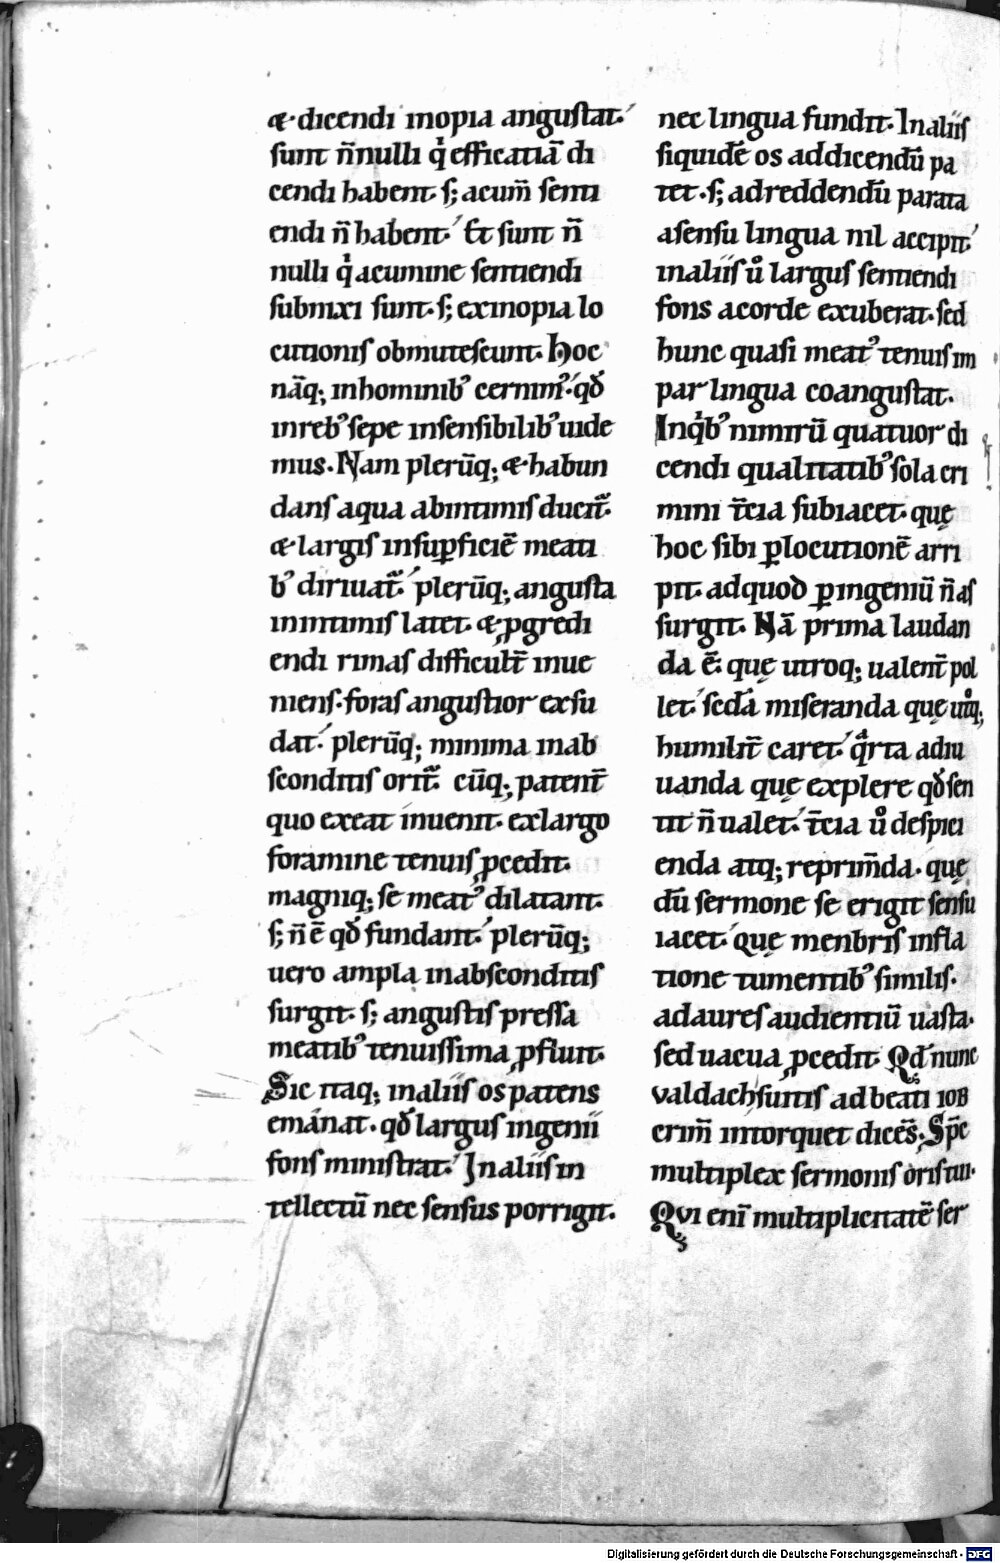 & dicendi inopia angustat᷑.
sunt n̄nulli qͥ efficatiā di
cendi habent. s; acum̄ senti
endi n̄ habent. Et sunt n̄
nulli qͥ acumine sentiendi
submixi sunt. s; exinopia lo
cutionis obmutescunt. hoc
nāq; inhominibꝰ cernimꝰ. qđ
inrebꝰ sepe insensibilibꝰ uide
mus. Nam plerūq; & habun
dans aqua abintimis ducit᷑.
& largis insuꝑficiē meati
bꝰ diriuat᷑. plerūq; angusta
inintimis latet. & ꝓgredi
endi rimas difficult̄ inue
niens. foras angustior exsu
dat. plerūq; minima inab
sconditis orit᷑. cūq; patent̄
quo exeat inuenit. exlargo
foramine tenuis ꝓcedit.
magniq; se meatꝰ dilatant.
s; n̄ ē qđ fundant. plerūq;
uero ampla inabsconditis
surgit. s; angustis pressa
meatibꝰ tenuissima ꝓfluit.
Sic itaq; inaliis os patens
emanat. qđ largus ingenii
fons ministrat. Inaliis in
tellectū nec sensus porrigit.
nec lingua fundit. Inaliis
siquidē os addicendū pa
tet. s; adreddendū parata
asensu lingua nil accipit.
inaliis uͦ largus sentiendi
fons acorde exuberat. sed
hunc quasi meatꝰ tenuis im
par lingua coangustat.
Inqͥbꝰ nimirū quatuor di
cendi qualitatibꝰ sola cri
mini t̄cia subiacet. quę
hoc sibi ꝑ locutionē arri
pit. adquod ꝑ ingeniū n̄ as
surgit. Nā prima laudan
da ē. quę utroq; ualent̄ pol
let. sed̄a miseranda quę utͦq;
humilit̄ caret. qͣrta adiu
uanda quę explere qđ sen
tit n̄ ualet. t̄cia uͦ despici
enda atq; reprim̄da. quę
dū sermone se erigit sensu
iacet. Quę menbris infla
tione tumentibꝰ similis.
adaures audientiū uasta.
sed uacua ꝓcedit. Qđ nunc
valdachsuitis adbeati IOB
crim̄ intorquet dicēs. Sp̄c
multiplex sermonis oris tui.
Qvi eni̅ multiplicitatē ser
Digitalisierung gefördert durch die Deutsche Forschungsgemeinschaft - DFG